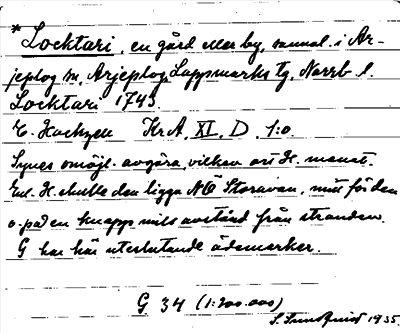 * Locktari, en gård eller by, saml. i Ar-
jeplog sn, Arjeplog Lappmarks tg, Norrb l.
Locktari 1743.
E. Hackzell KrA, XI, D, 1:0
Synes omöjl. avgöra, vilken ort H. menat.
Enl. H. skulle den ligga NÖ Storavan, mitt för den
o. på en knapp mils avstånd från stranden.
G har här uteslutande ödemarker.
G 34 (1:200.000)
S. Sundquist 1935.